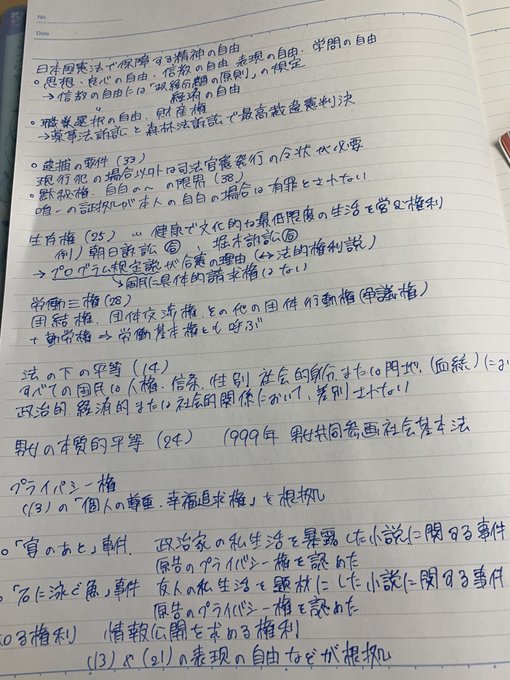 No.
Date
日本国憲法で保障する精神の自由
○思想・良心の自由、信教の自由、表現の自由、学問の自由
→信教の自由には「政経分離の原則」の規定
〃 経済の自由
○職業選択の自由、財産権
→薬事法訴訟と森林法訴訟で最高裁違憲判決
○逮捕の要件 (33)
現行犯の場合以外は司法官憲発行の令状が必要
○黙秘権、自白の への限界 (38)
唯一の証拠が本人の自白の場合は有罪とされない
生存権 (25) … 健康で文化的な最低限度の生活を営む権利
例) 朝日訴訟 、堀木訴訟
→プログラム規定説が合憲の理由 (↔法的権利説)
↳国民に具体的請求権はない
労働三権 (28)
団結権、団体交渉権、その他の団体行動権 (争議権)
+ 勤労権 ⇒ 労働基本権とも呼ぶ
法の下の平等 (14)
すべての国民は人権、信条、性別、社会的身分または門地、(血統) に
政治的、経済的または社会的関係において、差別されない
男女の本質的平等 (24) 1999年 男女共同参画社会基本法
プライバシー権
(13) の「個人の尊重、幸福追求権」を根拠
○「宴のあと」事件、政治家の私生活を暴露した小説に関する事件
原告のプライバシー権を認めた
○「石に泳ぐ魚」事件 友人の私生活を題材にした小説に関する事件
原告のプライバシー権を認めた
知る権利 情報公開を求める権利
(13) や (21) の表現の自由などが根拠